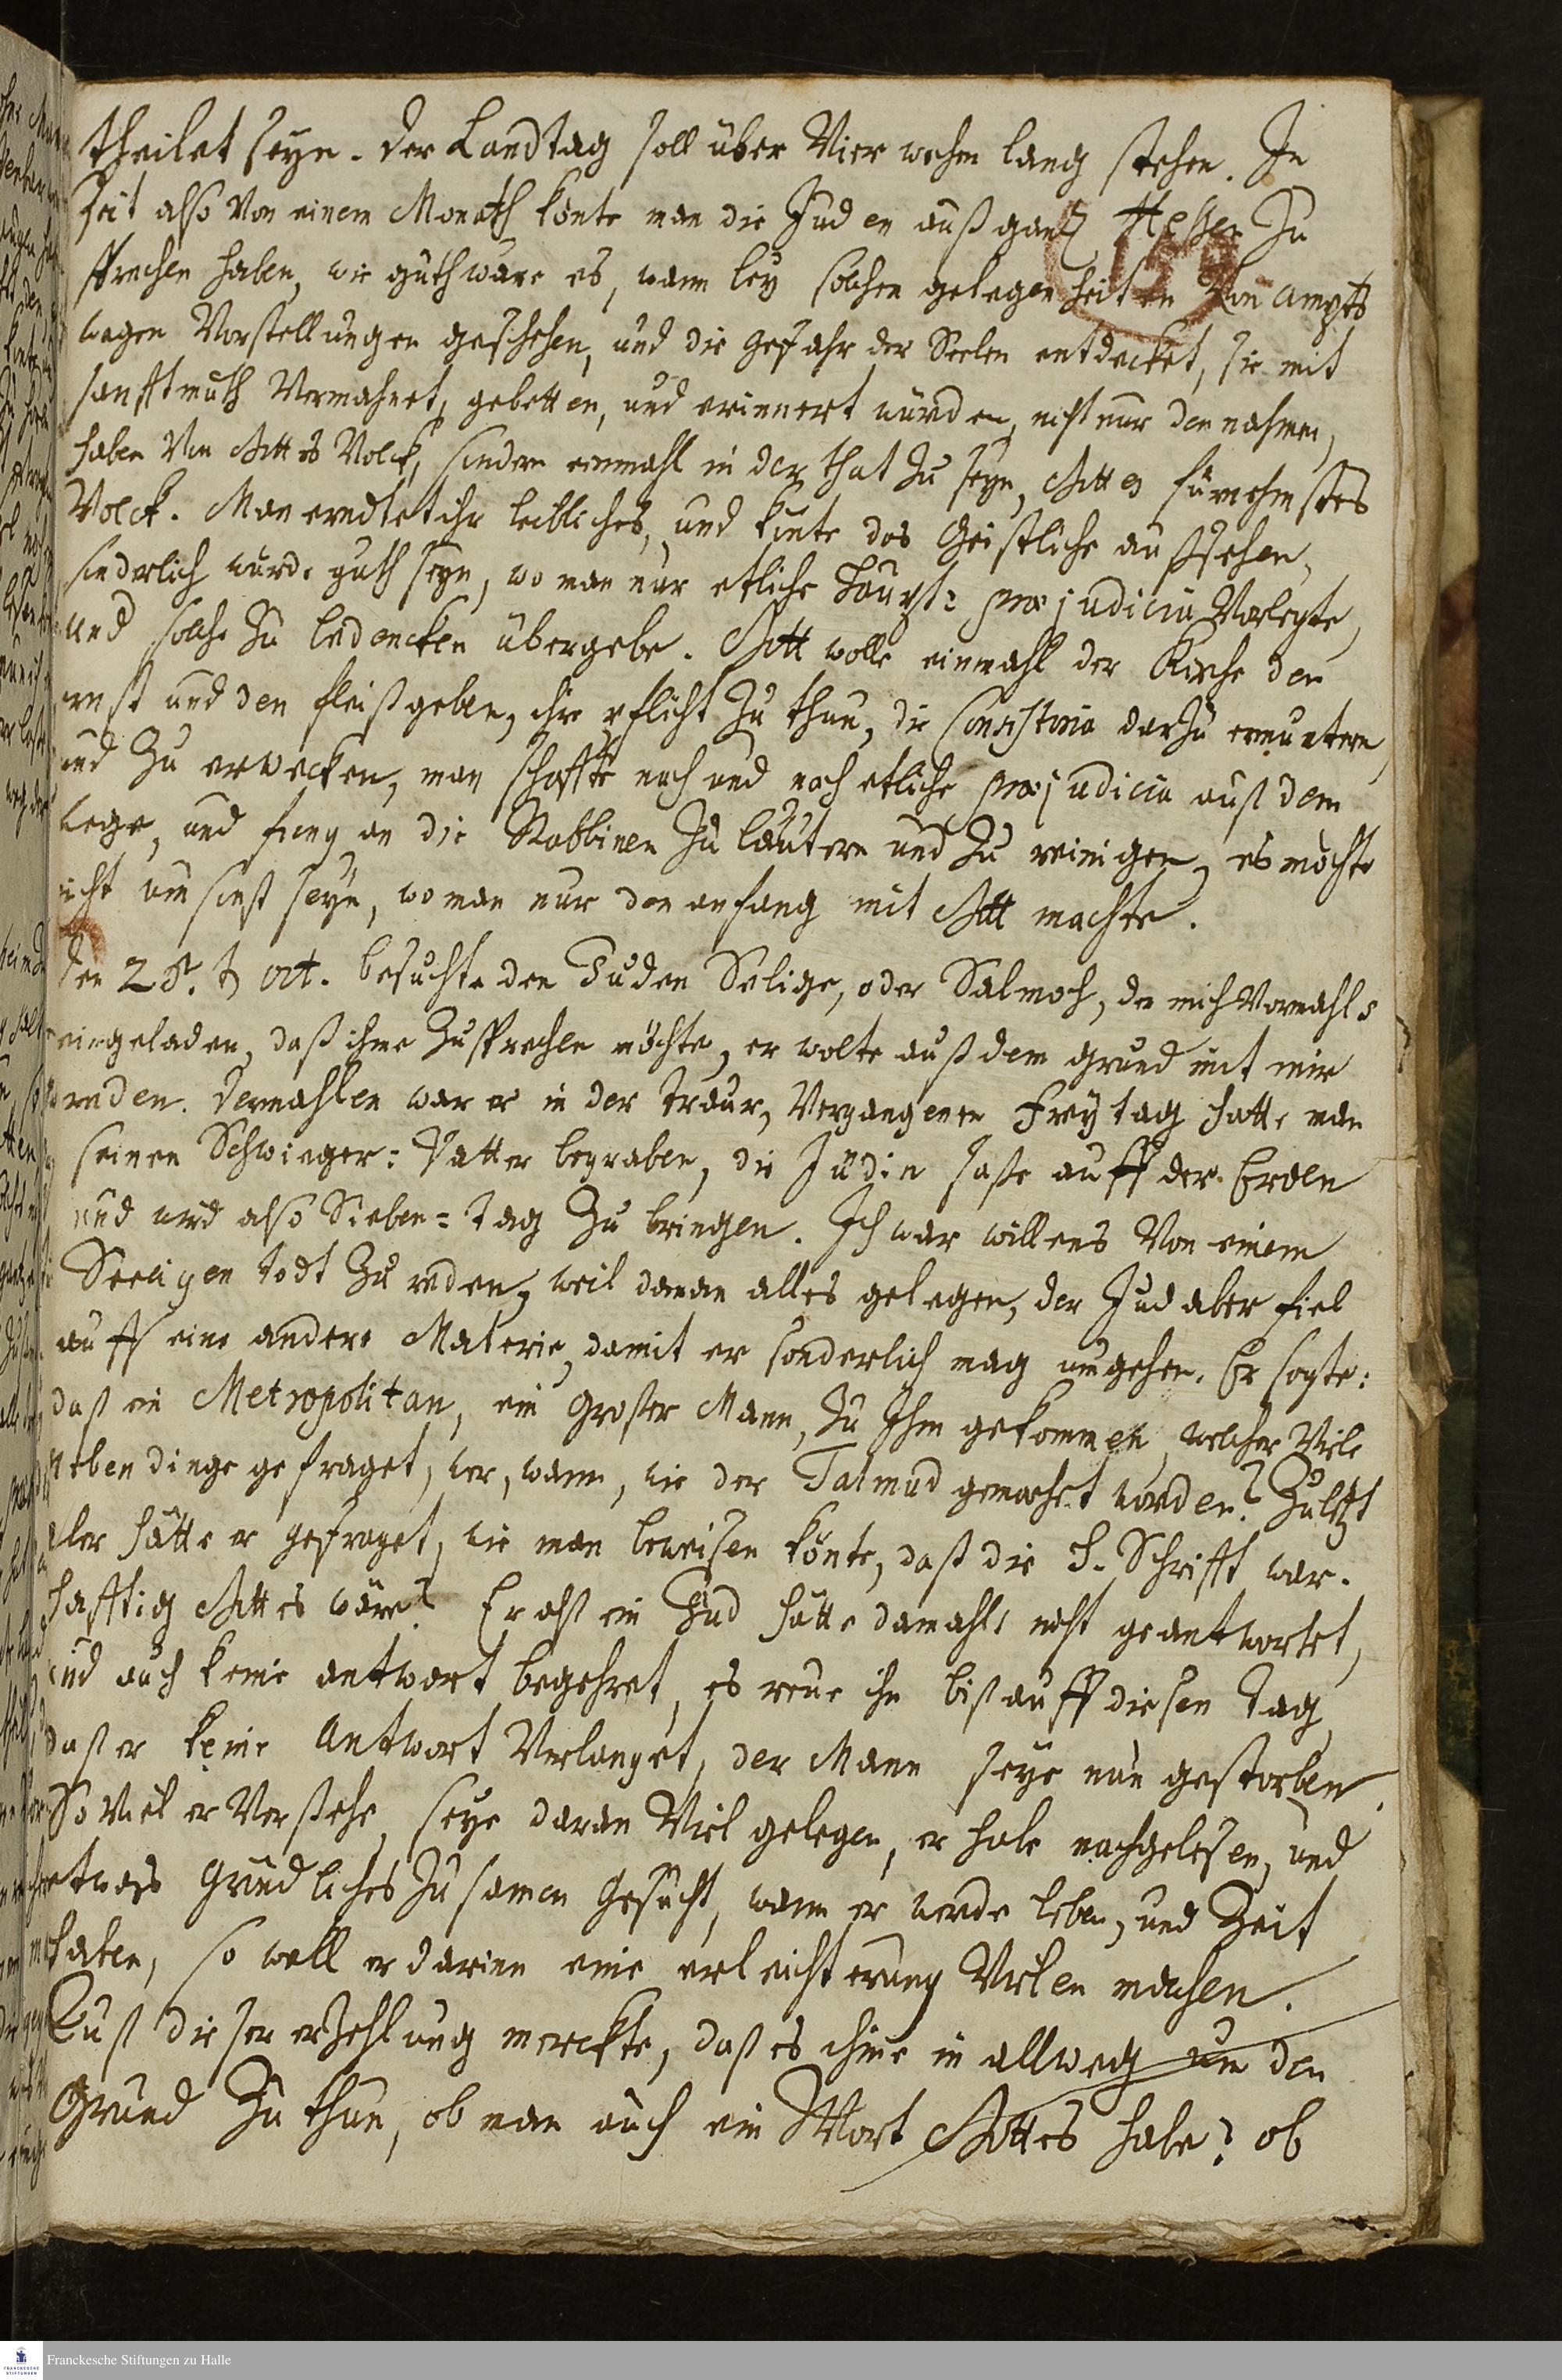 theilet seyn. Der Landtag soll über Vier wochen lang stehen. In
Zeit also von einem Monath könte man die Juden auß gantz Hessen zu
sprechen haben, wie guth wäre es, wann bey solchen gelegenheiten von ampts
wegen Vorstellungen geschehen, und die gefahr der Seelen entdecket, sie mit
sanfftmuth Vermahnet, gebetten, und erinnert würden, nicht nur den nahmen,
haben Von Gottes Volck, sondern einmahl in der that zu seyn, Gottes fürnehmstes
Volck. Man erndtet ihr leibliches, und könte das Geistliche außsehen,
sonderlich würde guth seyn, wo man nur etliche Haupt= præjudicia Vorlegte,
und solche zu bedencken übergebe. Gott wolle einmahl der Kirche den
ernst und den fleiß geben, ihre pflicht zu thun, die Consistoria darzu ermuntern,
und zu erwecken, man schaffte nach und nach etliche præjudicia auß dem
wege, und fieng an die Rabbinen zu läutern und zu reinigen, es möchte
nicht um sonst seyn, wo man nur den anfang mit Gott machte.
Den 28. t oct. besuchte den Juden Selige, oder Salmoh, der mich Vormahls
eingeladen, daß ihme zusprechen möchte, er wolte auß dem grund mit mir
reden. Dermahlen war er in der traur, Vergangenen Freytag hatte man
seinen Schwieger= Vatter begraben, die Jüdin saße auff der Erden
und wird also Sieben= tag zu bringen. Ich war willens Von einem
Seeligen todt zu reden, weil daran alles gelegen, der Jud aber fiel
auff eine andere Materie, damit er sonderlich mag umgehen. Er sagte:
daß ein Metropolitan, ein großer Mann, zu Ihm gekommen, welcher Viele
Neben dinge gefraget, wer, wann, wie der Talmud gemachet worden? Zuletzt
aber hätte er gefraget, wie man beweisen könte, daß die H. Schrifft war-
hafftig Gottes wäre? Er alß ein Jud hätte damahls nicht geantwortet,
und auch keine antwort begehret, es reue ihn biß auff diesen tag,
daß er keine Antwort Verlanget, der Mann seye nun gestorben.
So viel er Verstehe, seye daran Viel gelegen, er habe nachgelesen, und
etwas Gründliches zusamen Gesucht, wann er werde leben, und Zeit
haben, so woll er darinn eine erleichterung Vielen machen.
Auß dieser erzehlung merckte, daß es ihme in allweg um den
Grund zu thun, ob man auch ein Wort Gottes habe? ob
Franckesche Stiftungen zu Halle